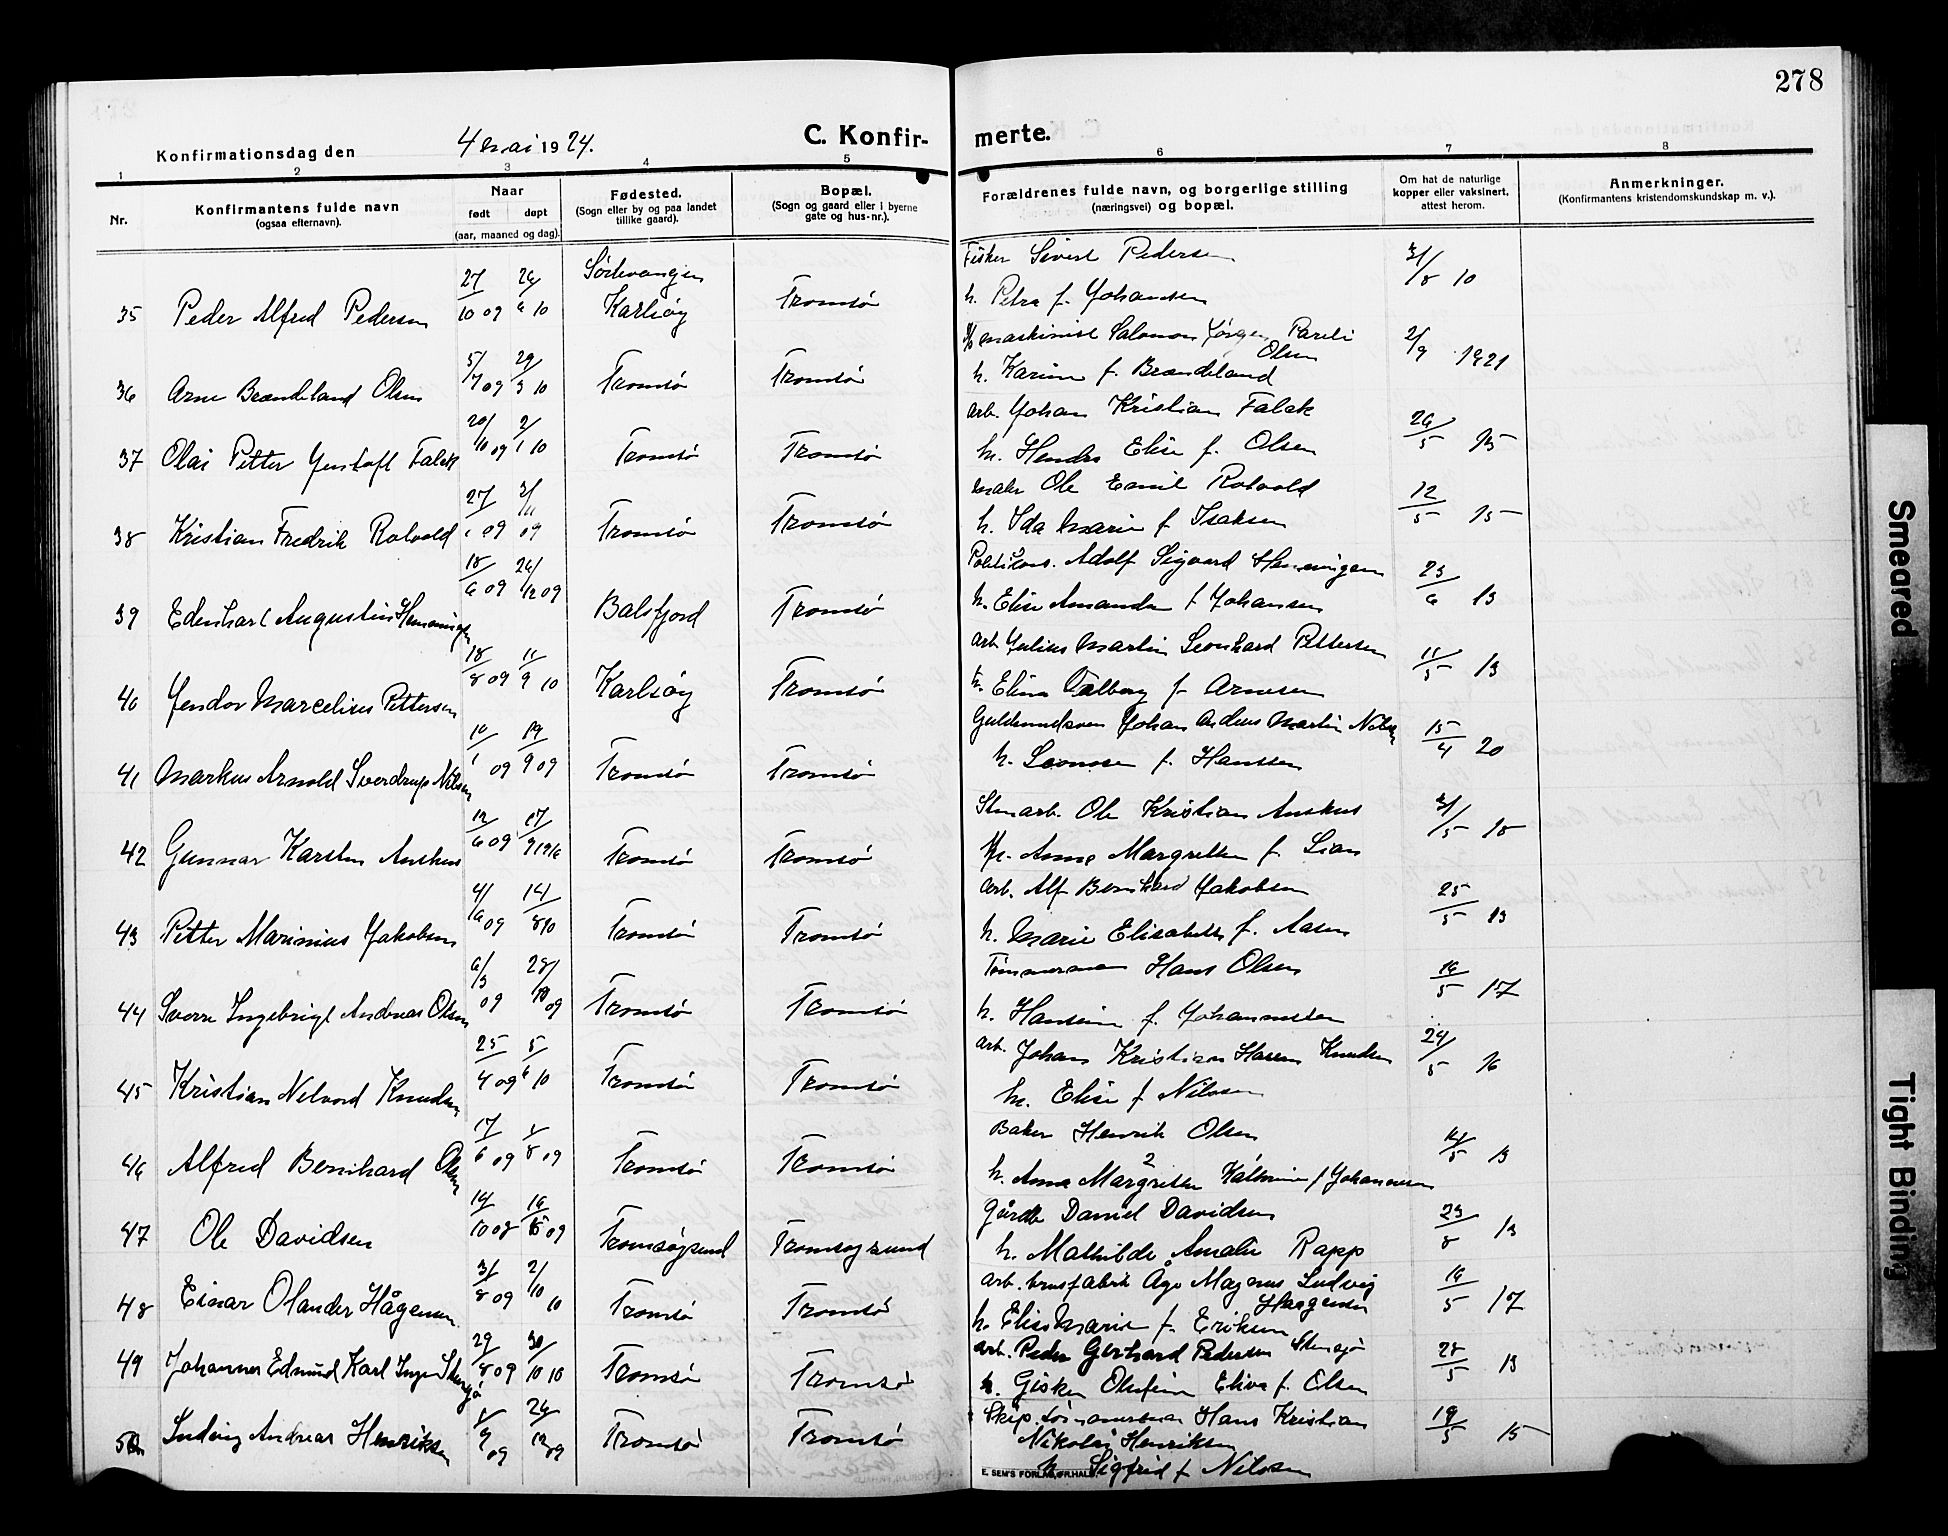 278
Konfirmationsdag den 4 mai 1924.
C. Konfir-
merte.
1 2 3 4 5 6 7 8
Nr.
Konfirmantens fulde navn
(ogsaa efternavn).
Naar
født døpt
(aar, maaned og dag).
Fødested.
(Sogn eller by og paa landet
tillike gaard).
Bopæl.
(Sogn og gaard eller i byerne
gate og hus-nr.).
Forældrenes fulde navn, og borgerlige stilling
(næringsvei) og bopæl.
Om hat de naturlige
kopper eller vaksinert,
attest herom.
Anmerkninger.
(Konfirmantens kristendomskundskap m. v.).
35 Peder Alfred Pedersen 27/10 09 26/6 10 Karlsøy Tromsø
Fisker Sivert Pedersen
h. Petra f. Johansen
31/8 10
36 Arne Brændeland Olsen 5/7 09 29/3 10 Tromsø Tromsø
maskinist Salomon Jørgen Pareli
Olsen
h. Karine f. Brændeland
2/9 1921
37 Olai Petter Gustaft Falck 20/10 09 2/1 10 Tromsø Tromsø
arb. Johan Kristian Falck
h. Elise f. Olsen
26/5 15
38 Kristian Fredrik Rolvold 27/1 09 3/11 09 Tromsø Tromsø
maler Ole Emil Rolvold
h. Ida Marie f. Isaksen
12/5 15
39 Edenhart Augustin Henningsen 18/6 09 26/12 09 Balsfjord Tromsø
Adolf Sigvard Henningsen
h. Elise Amanda f Johansen
23/6 13
40 Marcelius Pettersen 18/8 09 11/9 10 Karlsøy Tromsø
arb. Julius Martin Leonhard Pettersen
h. Elina f. Arnesen
11/5 13
41 Markus Arnold Sverdrup Nilsen 10/1 09 19/9 09 Tromsø Tromsø
Guldsmedsven Johan Andreas Martin Nilsen
h. f. Hanssen
15/4 20
42 Gunnar Karsten Auskus 12/6 09 17/9 1916 Tromsø Tromsø
Ole Kristian Auskus
h. Anna Margrethe f. Lian
31/5 15
43 Petter Marinius Jakobsen 4/6 09 14/8 10 Tromsø Tromsø
arb. Alf Bernhard Jakobsen
h. Marie Elisabeth f. Aasen
25/5 13
44 Sverre Ingebrigt Andreas Olsen 6/3 09 28/10 09 Tromsø Tromsø
Tømmermann Hans Olsen
h. Hansine f. Johannessen
16/5 17
45 Kristian Nelvord Knudsen 25/4 09 5/6 10 Tromsø Tromsø
arb. Johan Kristian Knudsen
h. Elise f Nilssen
29/5 16
46 Alfred Bernhard Olsen 17/6 09 1/8 09 Tromsø Tromsø
Baker Henrik Olsen
h. Anna Margrethe Katrine f Johannesen
14/5 13
47 Ole Davidsen 14/10 08 16/5 09 Tromsøysund Tromsøysund
Gårdb Daniel Davidsen
h. Mathilde Amalie Rapp
23/8 13
48 Einar Olander Hågensen 31/8 09 2/10 10 Tromsø Tromsø
arb. brusfabrik Åge Magnus Ludvig
Haagensen
h. Elise Marie f. Eriksen
16/5 17
49 Johannes Edmund Karl Inge Stensjø 29/8 09 30/10 10 Tromsø Tromsø
arb. Peder Gerhard Pedersen Stensjø
h. Gisken Olufine Eliva f. Olsen
28/5 13
50 Ludvig Andreas Henriksen 1/9 09 26/12 09 Tromsø Tromsø
Skip. tømmerman Hans Kristian
Nikolai Henriksen
h. Sigfrid f Nilssen
19/5 15
E. SEM'S FORLAG, FR.HALD.
Smeared
Tight Binding